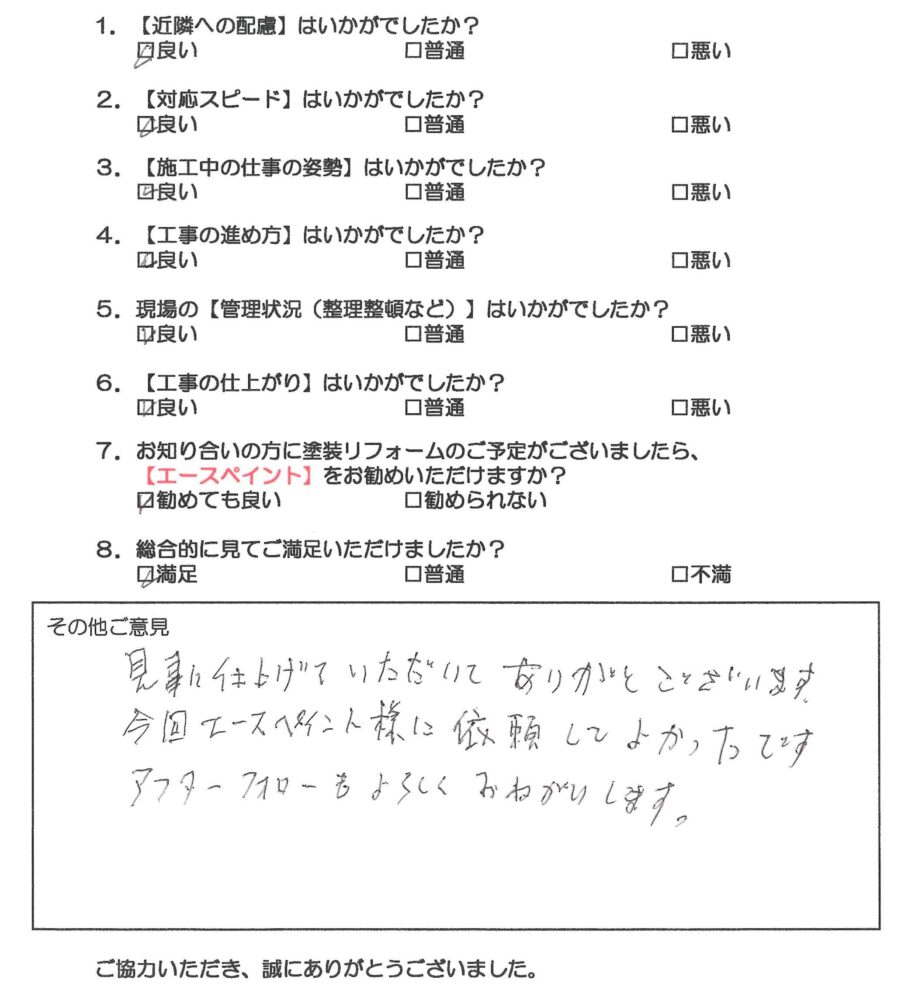 1．【近隣への配慮】はいかがでしたか？
☑良い □普通 □悪い
2．【対応スピード】はいかがでしたか？
☑良い □普通 □悪い
3．【施工中の仕事の姿勢】はいかがでしたか？
☑良い □普通 □悪い
4．【工事の進め方】はいかがでしたか？
☑良い □普通 □悪い
5．現場の【管理状況（整理整頓など）】はいかがでしたか？
☑良い □普通 □悪い
6．【工事の仕上がり】はいかがでしたか？
☑良い □普通 □悪い
7．お知り合いの方に塗装リフォームのご予定がございましたら、
【エースペイント】をお勧めいただけますか？
☑勧めても良い □勧められない
8．総合的に見てご満足いただけましたか？
☑満足 □普通 □不満
その他ご意見
見事に仕上げていただいて ありがとございます。
今回エースペイント様に依頼してよかったです
アフターフォローもよろしくおねがいします。
ご協力いただき、誠にありがとうございました。